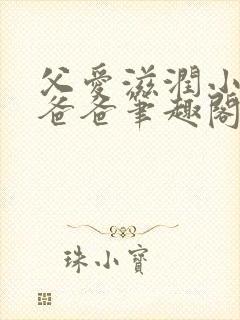 父愛滋潤小
爸爸筆趣閣
珠小寶